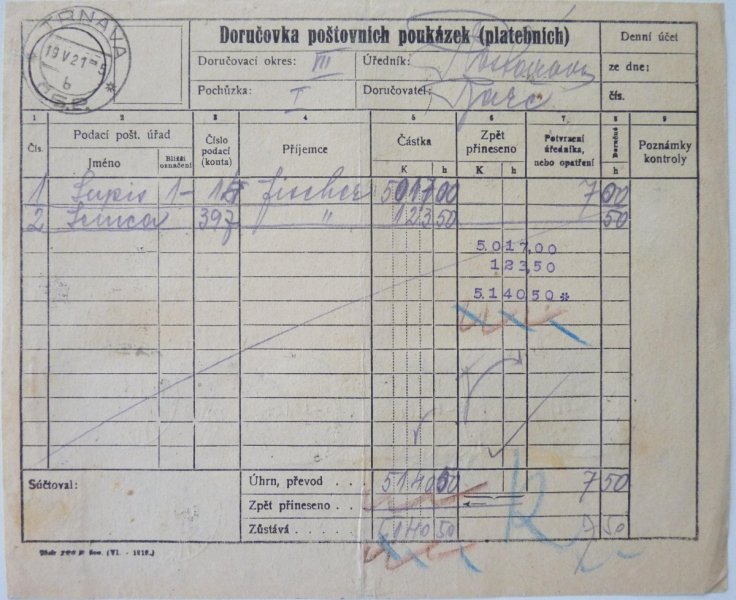 TRNAVA
19 V 21 - 5
b
Doručovka poštovních poukázek (platebních)
Denní účet
Doručovací okres: III
Úředník:
ze dne:
Pochůzka: I
Doručovatel:
čís.
1 2 3 4 5 6 7. 8 9
Čís.
Podací pošt. úřad
Jméno
Bližší označení
Číslo podací (konta)
Příjemce
Částka
K h
Zpět přineseno
K h
Potvrzení úředníka, nebo opatření
Doručné
h
Poznámky kontroly
1 Lupis 1 - 14 Fischer 5017 00 7 00
2 397 " 123 50 50
5.017,00
123,50
5.140 50 *
Súčtoval:
Úhrn, převod . . . 5140 50 7 50
Zpět přineseno . . .
Zůstává . . . 5140 50 7 50